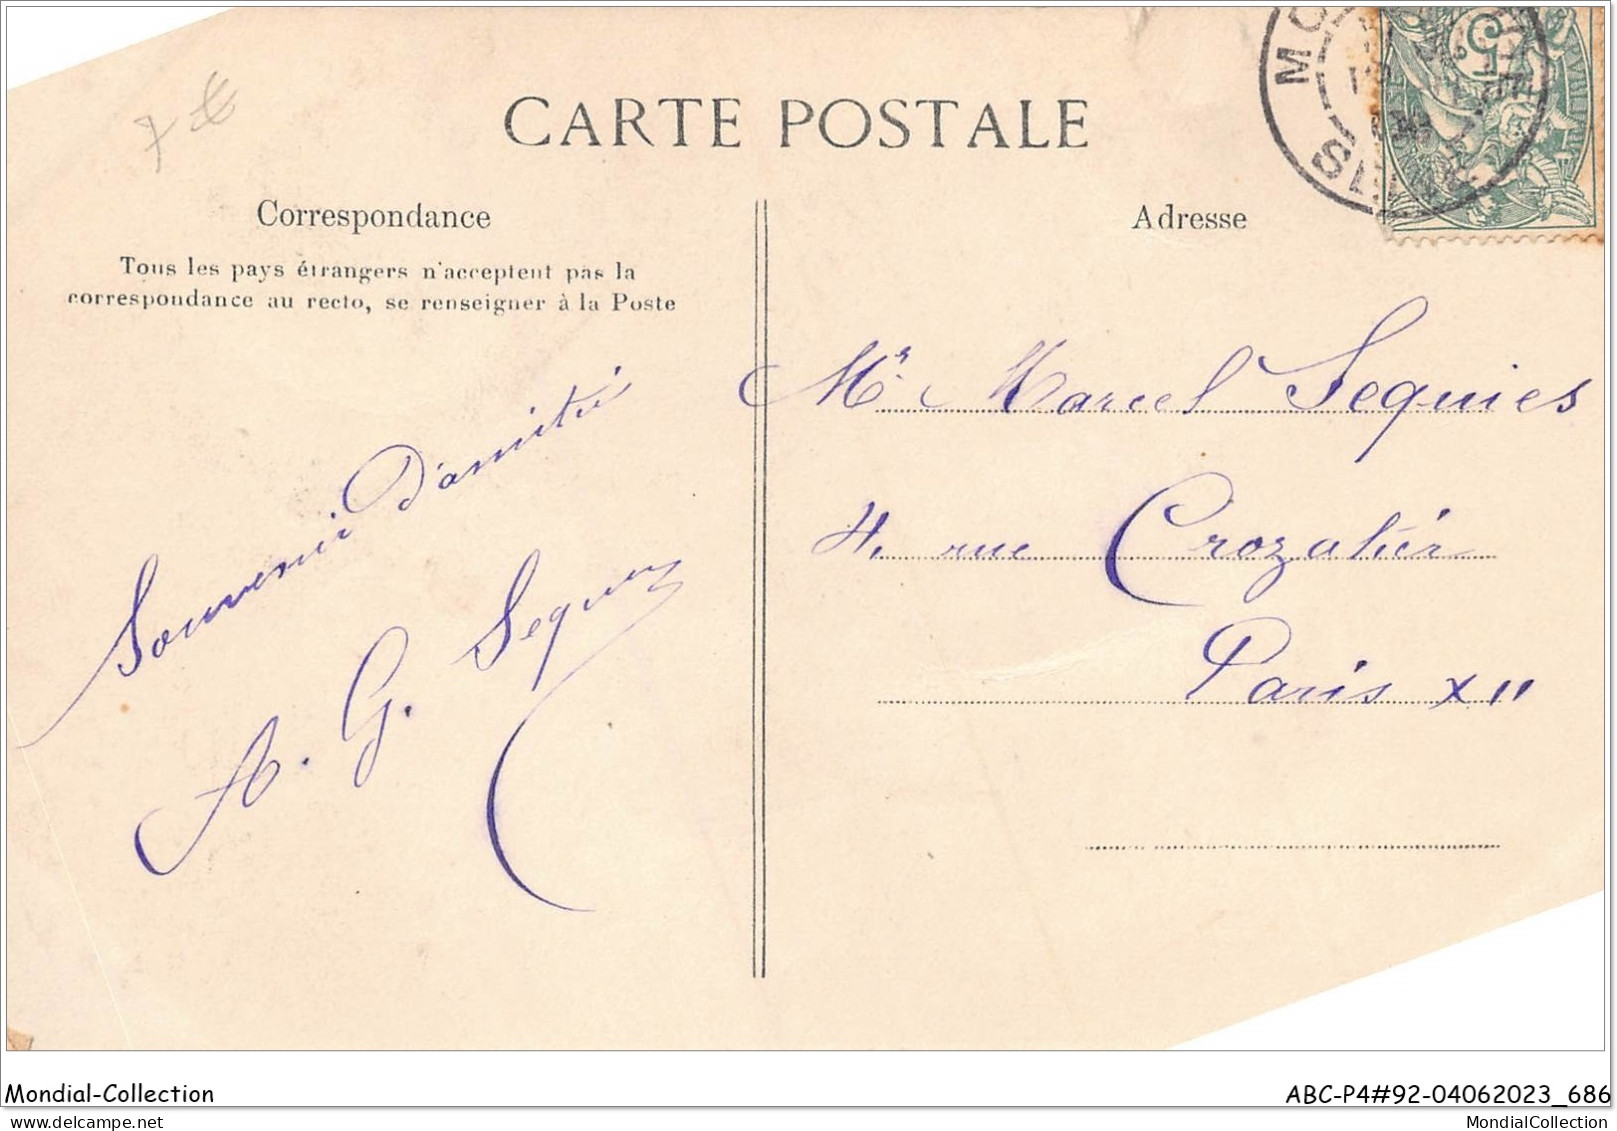 7 €
CARTE POSTALE
Correspondance
Tous les pays étrangers n'acceptent pas la
correspondance au recto, se renseigner à la Poste
Souvenir d'amitié
A. G. Sequies
Adresse
5
SEINE
Mr. Marcel Sequies
4, rue Crozatier
Paris XII
Mondial-Collection
ABC-P4#92-04062023_686
MondialCollection